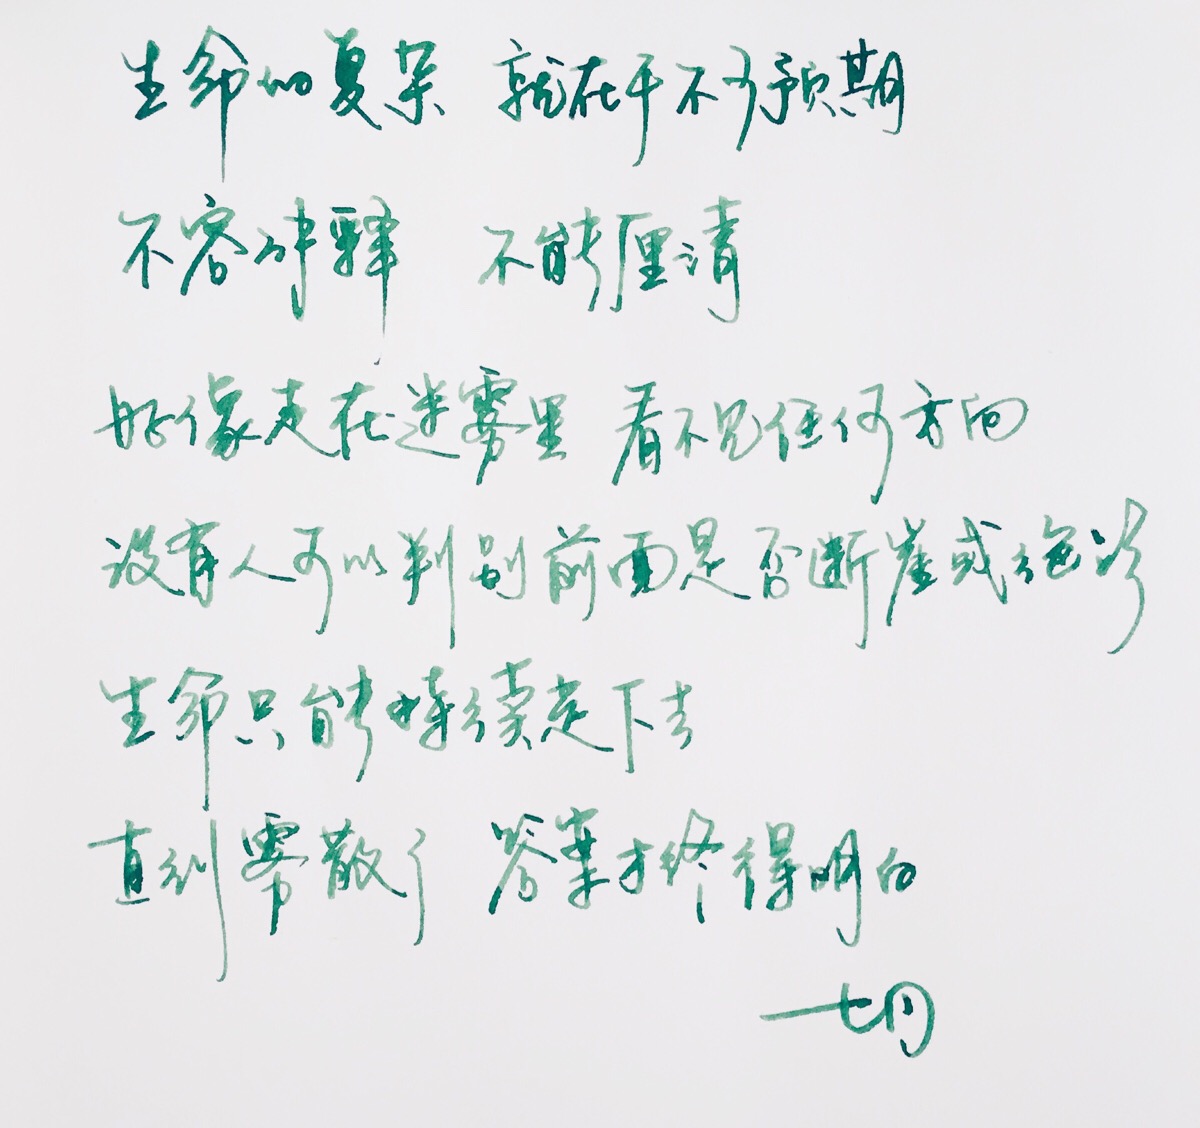 生命的复杂 就在于不可预期
不容冲肆 不能厘清
好像走在迷雾里 看不见任何方向
没有人可以判别前面是否断崖或绝谷
生命只能持续走下去
直到雾散了 答案才终得明白
七月